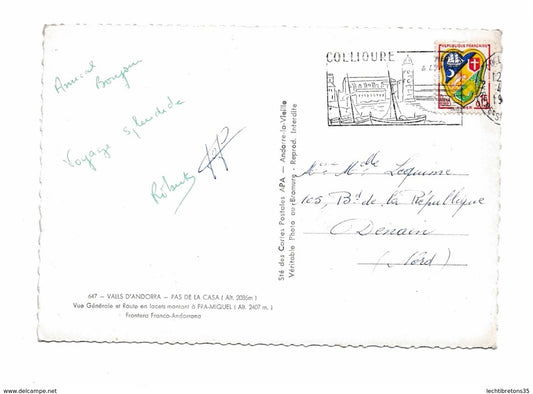 Amical
Bonjour
Voyage splendide
COLLIOURE
REPUBLIQUE FRANÇAISE
0,15
ALGER
Sté des Cartes Postales APA — Andorre-la-Vieille
Véritable Photo au Bromure - Reprod. Interdite
Mme Mlle Lequime
105, Bd de la République
Denain
(Nord)
647 — VALLS D'ANDORRA — PAS DE LA CASA (Alt. 2085m)
Vue Générale et Route en lacets montant à FRA-MIQUEL (Alt. 2407 m.)
Frontera Franco-Andorrana
www.delcampe.net
lechtibretons35